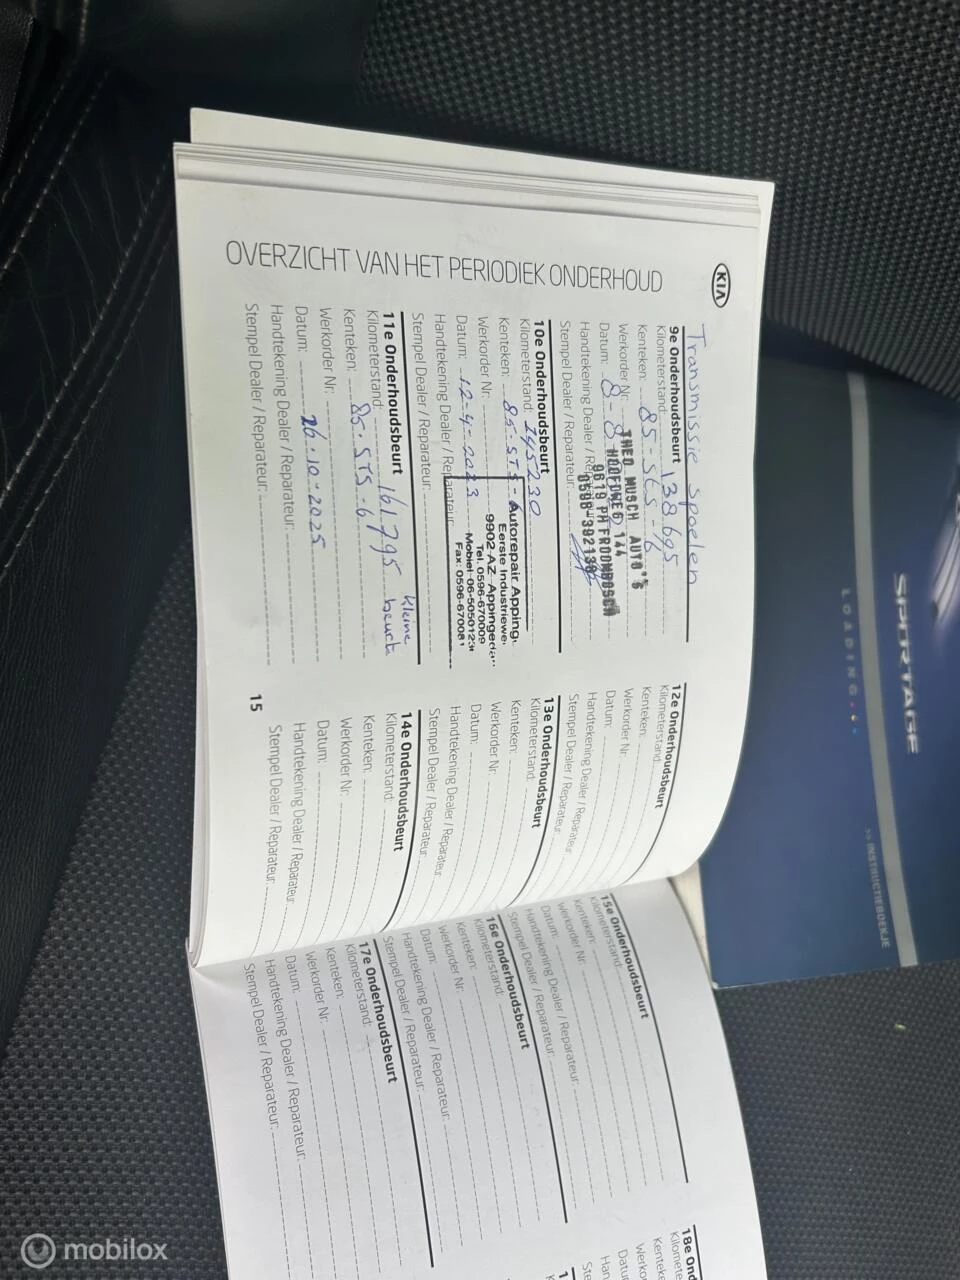 KIA
OVERZICHT VAN HET PERIODIEK ONDERHOUD
Transmissie spoelen
9e Onderhoudsbeurt
Kilometerstand: 138695
Kenteken: 85-STS-6
Werkorder Nr:
Datum: 8-8
Handtekening Dealer / Reparateur:
Stempel Dealer / Reparateur:
THEO MUSCH AUTO'S
HOOFDWEG 144
9619 PH FROOMBOSCH
0598-392138
10e Onderhoudsbeurt
Kilometerstand: 145230
Kenteken: 85-STS-6
Werkorder Nr:
Datum: 12-4-2023
Handtekening Dealer / Reparateur:
Stempel Dealer / Reparateur:
Autorepair Apping
Eerste Industriewe
9902-AZ Appingeda
Tel. 0596-670009
Mobiel 06-5050123
Fax: 0596-670081
11e Onderhoudsbeurt
Kilometerstand: 161795 kleine beurt
Kenteken: 85-STS-6
Werkorder Nr:
Datum: 26-10-2025
Handtekening Dealer / Reparateur:
Stempel Dealer / Reparateur:
12e Onderhoudsbeurt
Kilometerstand:
Kenteken:
Werkorder Nr:
Datum:
Handtekening Dealer / Reparateur:
Stempel Dealer / Reparateur:
13e Onderhoudsbeurt
Kilometerstand:
Kenteken:
Werkorder Nr:
Datum:
Handtekening Dealer / Reparateur:
Stempel Dealer / Reparateur:
14e Onderhoudsbeurt
Kilometerstand:
Kenteken:
Werkorder Nr:
Datum:
Handtekening Dealer / Reparateur:
Stempel Dealer / Reparateur:
15
15e Onderhoudsbeurt
Kilometerstand:
Kenteken:
Werkorder Nr:
Datum:
Handtekening Dealer / Reparateur:
Stempel Dealer / Reparateur:
16e Onderhoudsbeurt
Kilometerstand:
Kenteken:
Werkorder Nr:
Datum:
Handtekening Dealer / Reparateur:
Stempel Dealer / Reparateur:
17e Onderhoudsbeurt
Kilometerstand:
Kenteken:
Werkorder Nr:
Datum:
Handtekening Dealer / Reparateur:
Stempel Dealer / Reparateur:
18e Ond
Kilomete
Kenteke
Werkor
Datu
Han
Ste
1
SPORTAGE
LOADING
>> INSTRUCTIEBOEKJE
mobilox